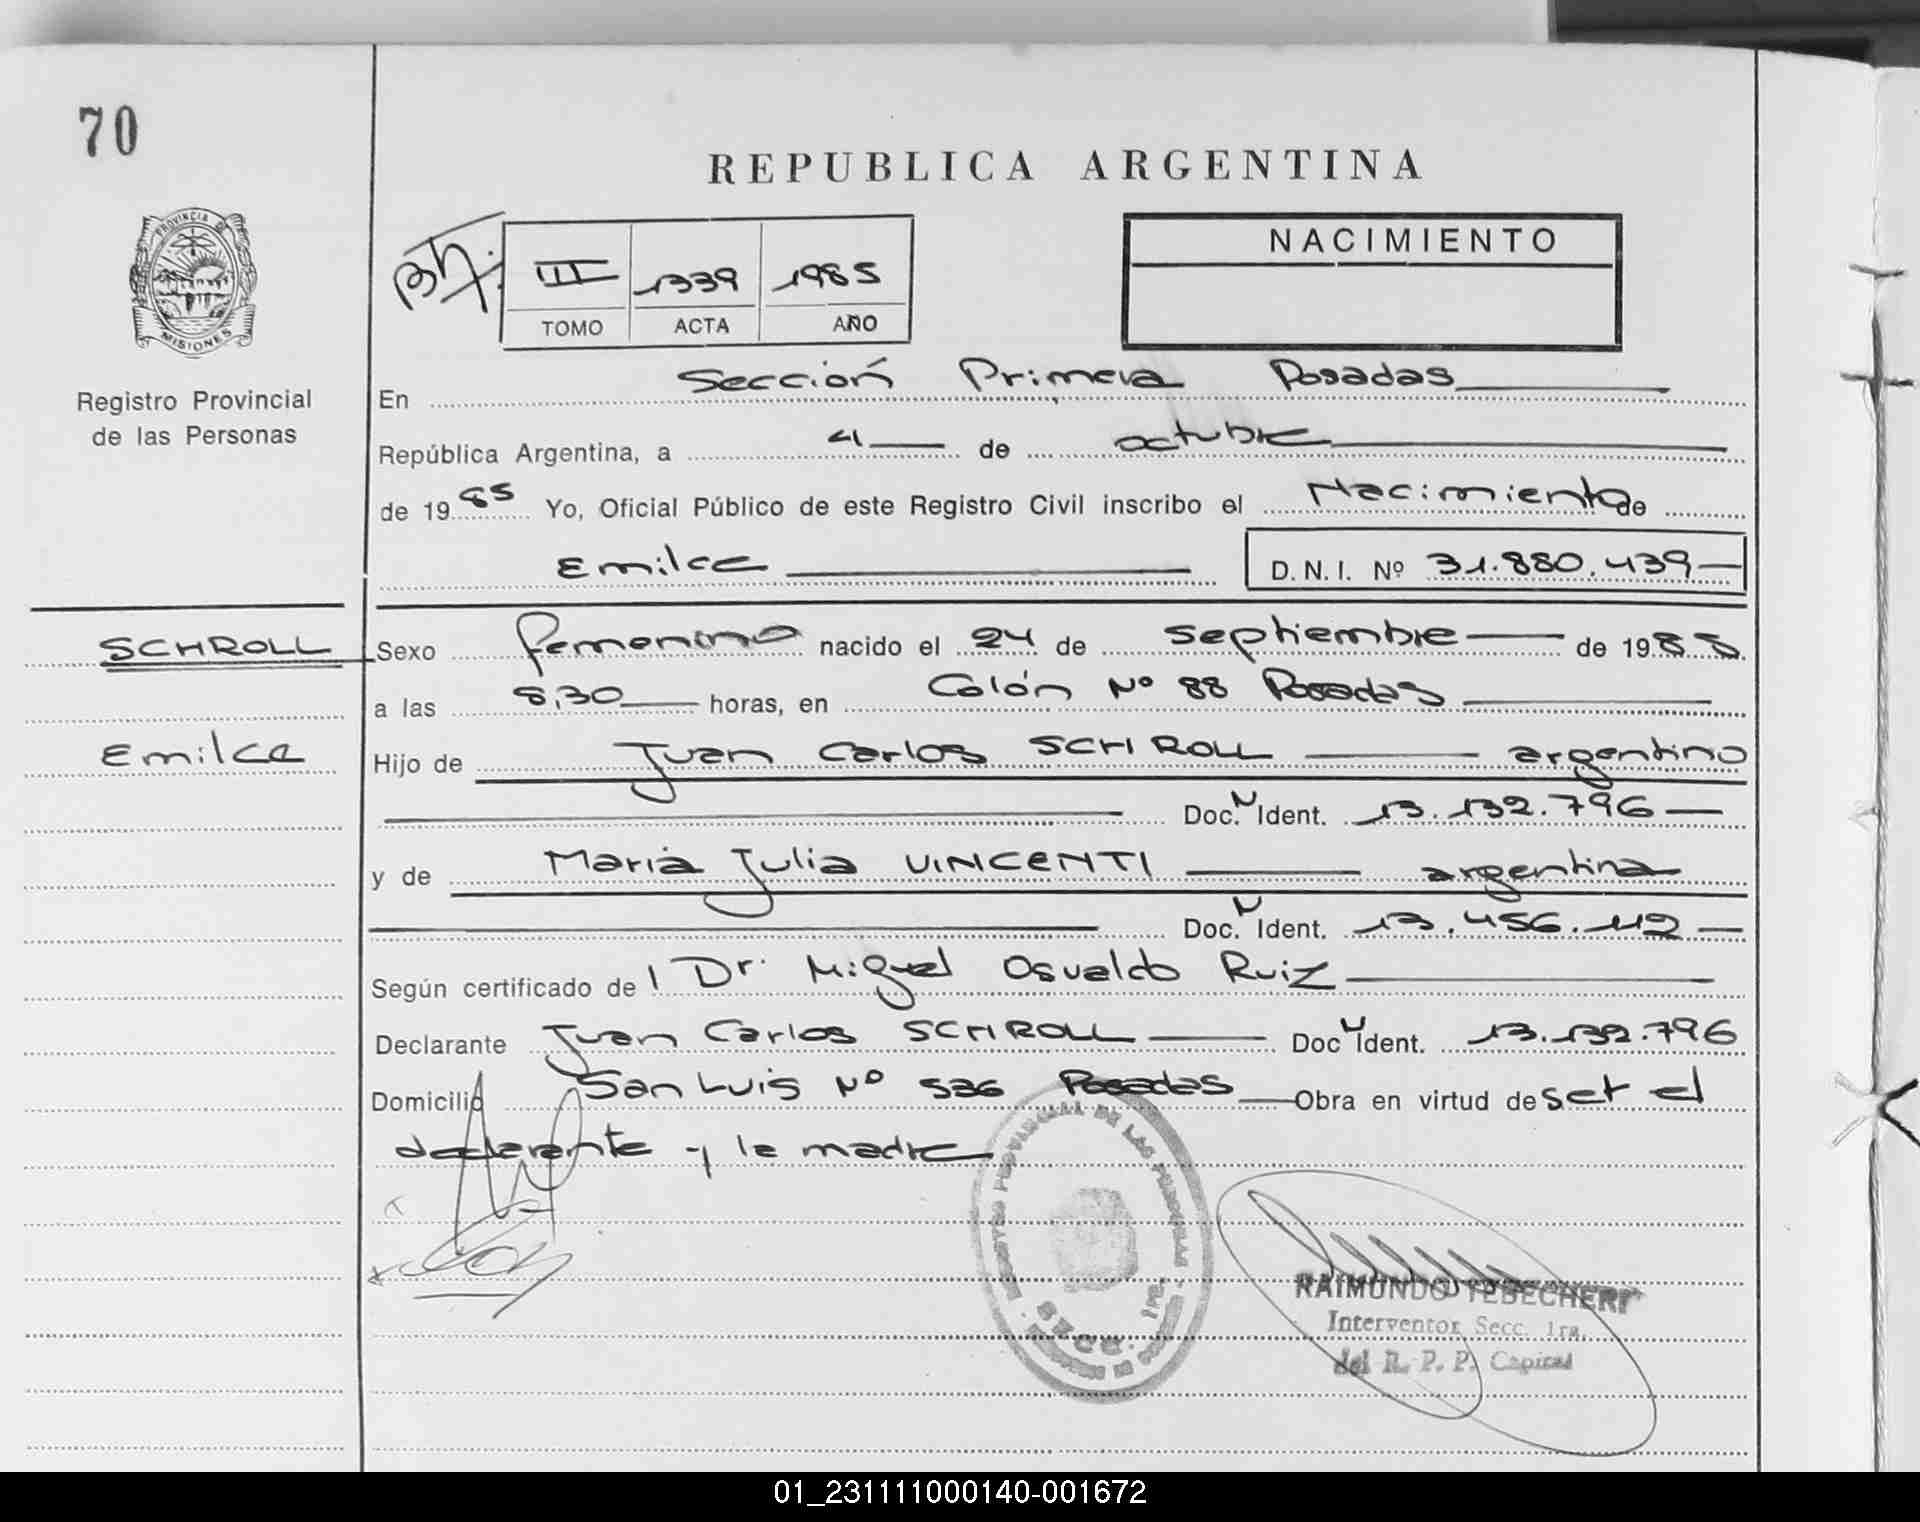 70
REPUBLICA ARGENTINA
PROVINCIA DE
MISIONES
Registro Provincial
de las Personas
III 1339 1985
TOMO ACTA AÑO
NACIMIENTO
En Sección Primera Posadas
República Argentina, a 4 de octubre
de 1985 Yo, Oficial Público de este Registro Civil inscribo el Nacimiento de
Emilce D.N.I. Nº 31.880.439
SCHROLL
Emilce
Sexo femenino nacido el 24 de septiembre de 1985
a las 8,30 horas, en Colón Nº 88 Posadas
Hijo de Juan Carlos SCHROLL argentino
Doc. N Ident. 13.132.796
y de Maria Julia VINCENTI argentina
Doc. N Ident. 13.456.112
Según certificado del Dr. Miguel Osvaldo Ruiz
Declarante Juan Carlos SCHROLL Doc N Ident. 13.132.796
Domicilio San Luis Nº 536 Posadas Obra en virtud de ser el
declarante y la madre
REGISTRO PROVINCIAL DE LAS PERSONAS
SECC. 1ra.
RAIMUNDO YEBECHERI
Interventor Secc. 1ra.
del R. P. P. Capital
01_231111000140-001672